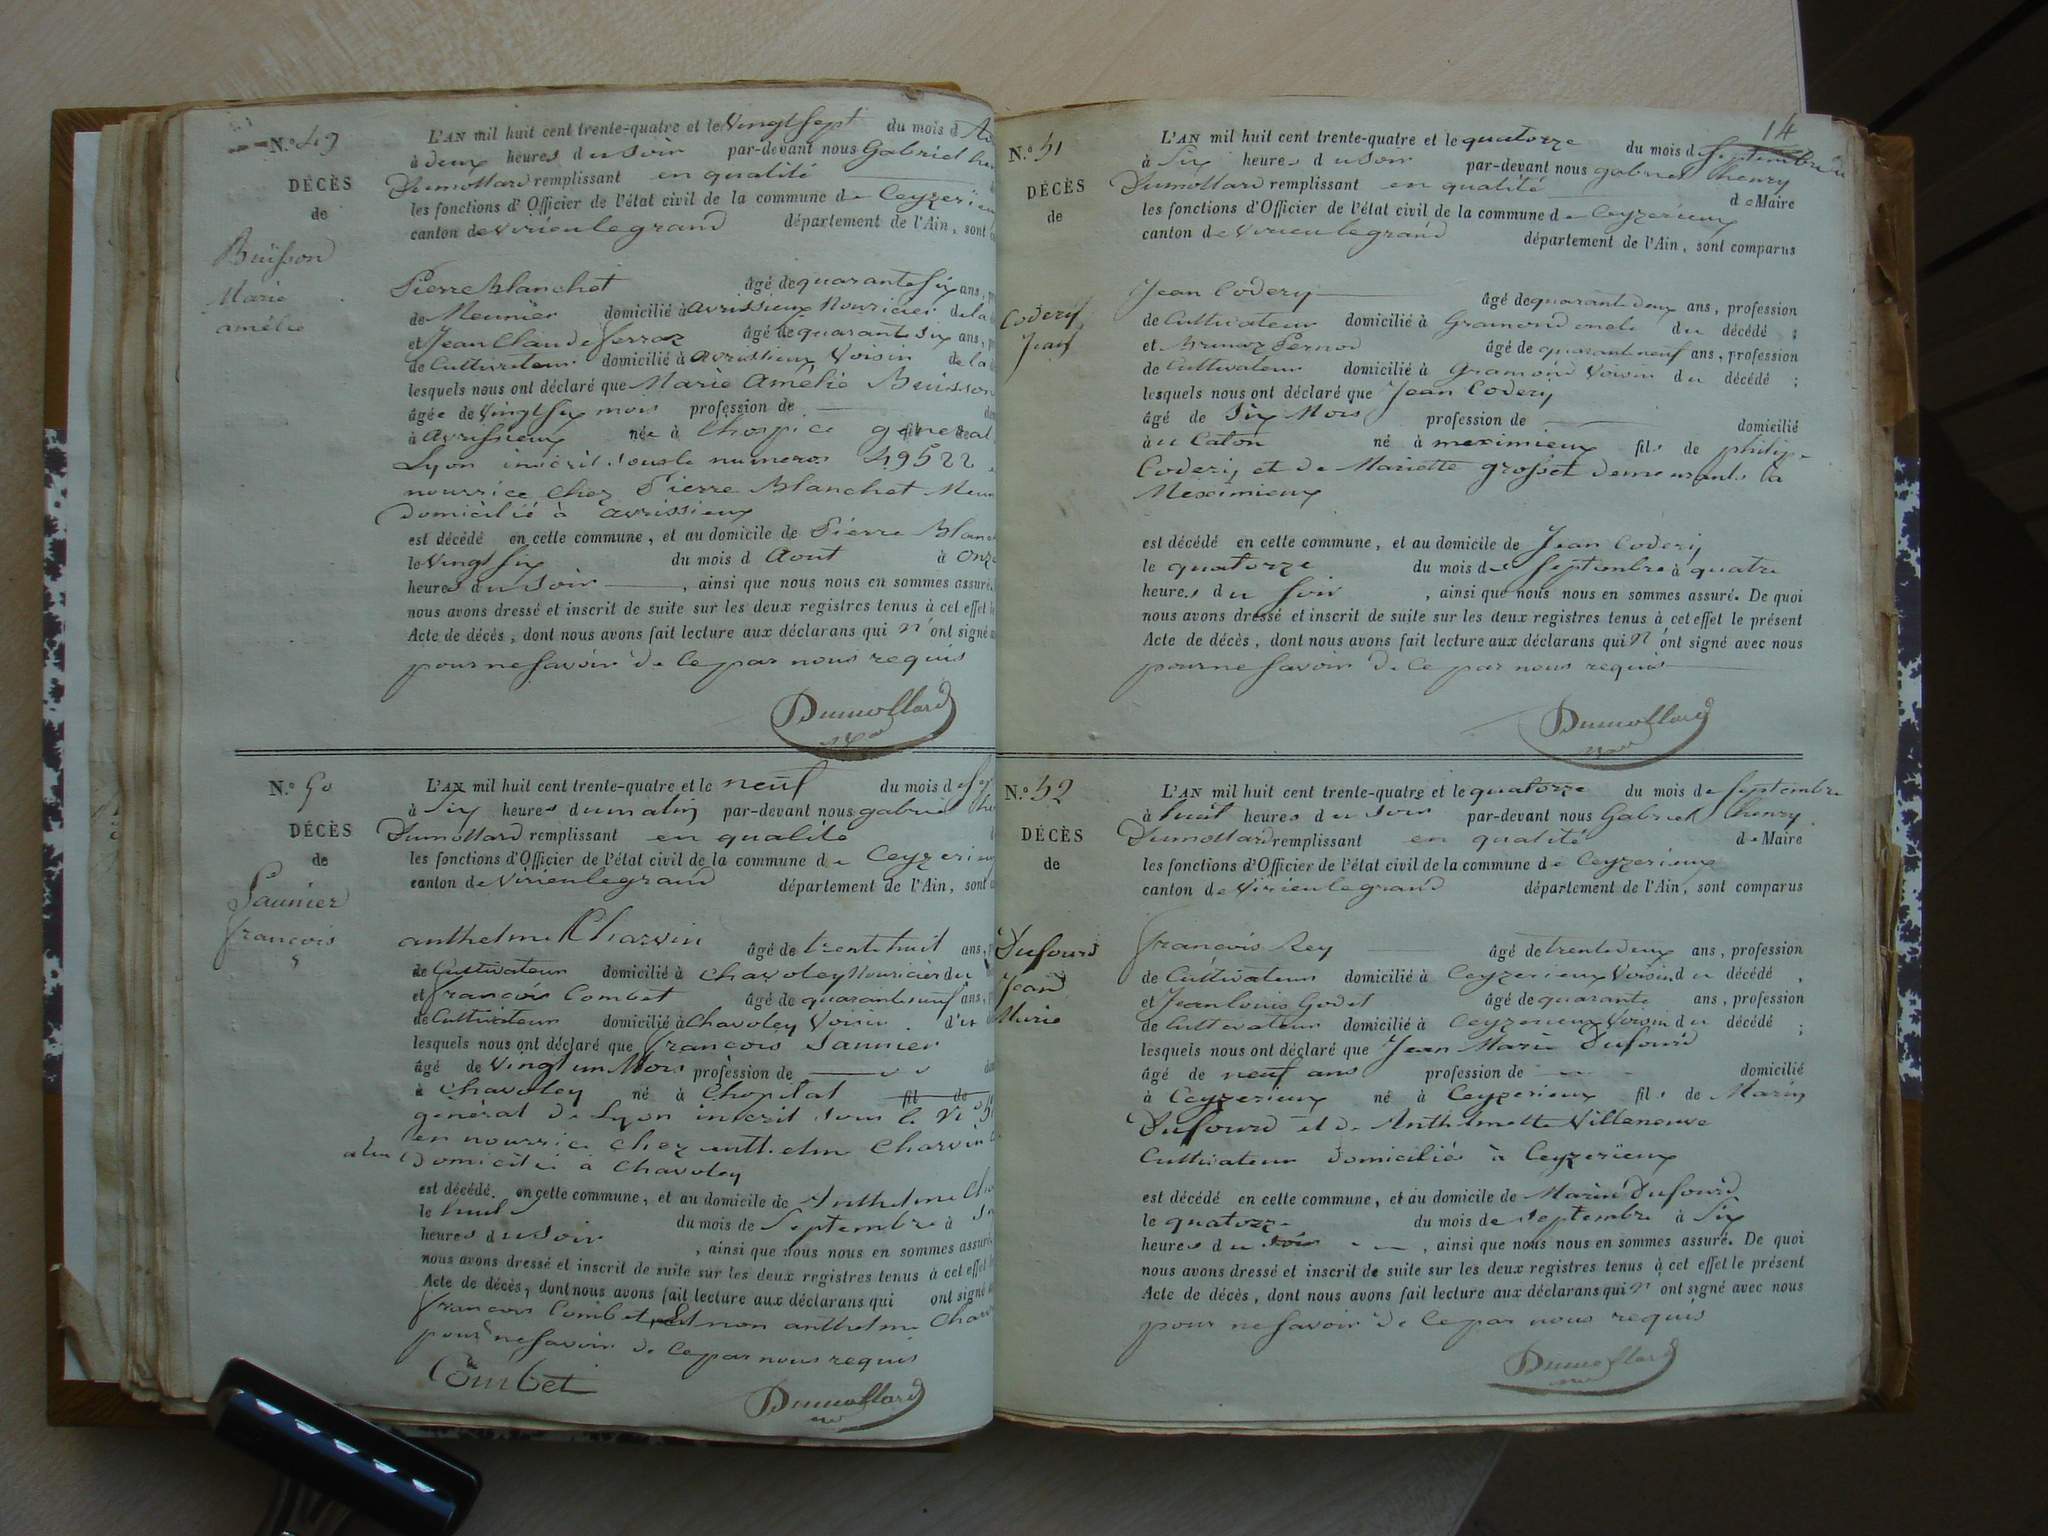 N.o 49
DÉCÈS
de
Buisson
Marie
amélie
L'AN mil huit cent trente-quatre et le vingt sept du mois d
à deux heures du soir par-devant nous Gabriel
Dumollard remplissant en qualité
les fonctions d'Officier de l'état civil de la commune de Ceyzerieu
canton de virieu le grand département de l'Ain, sont
Pierre Blanchet âgé de quarante six ans,
de Meunier domicilié à avrissieux Nouricier de la
et Jean Claude Ferraz âgé de quarante six ans,
de Cultivateur domicilié à avrissieux Voisin de la
lesquels nous ont déclaré que Marie Amélie Buisson
âgée de vingt six mois profession de
à avrissieux née à l'hospice general
Lyon inscrit sous le numeros 49522
nourrice chez Pierre Blanchet
domicilié à avrissieux
est décédé en cette commune, et au domicile de Pierre
le vingt six du mois d Aout à onze
heures du soir , ainsi que nous nous en sommes assuré.
nous avons dressé et inscrit de suite sur les deux registres tenus à cet effet
Acte de décès, dont nous avons fait lecture aux déclarans qui n'ont signé
pour ne savoir de ce par nous requis
Dumollard
N.o 50
DÉCÈS
de
Saunier
francois
L'AN mil huit cent trente-quatre et le neuf du mois d
à six heures du matin par-devant nous gabriel
Dumollard remplissant en qualité
les fonctions d'Officier de l'état civil de la commune de Ceyzerieu
canton de Virieu le grand département de l'Ain, sont
anthelme Charvin âgé de trente huit ans,
de Cultivateur domicilié à Chavoley Nouricier du
et francois Combet âgé de quarante neuf ans,
de Cultivateur domicilié à Chavoley Voisin
lesquels nous ont déclaré que francois Saunier
âgé de vingt un Mois profession de
à Chavoley né à l'hopital fil de
general de Lyon inscrit sous le
en nourrice chez anthelme Charvin
domicilié à Chavoley
est décédé en cette commune, et au domicile de Anthelme
le huit du mois de Septembre à
heures du soir , ainsi que nous nous en sommes assuré.
nous avons dressé et inscrit de suite sur les deux registres tenus à cet effet
Acte de décès, dont nous avons fait lecture aux déclarans qui ont signé
francois Combet, Et non anthelme
pour ne savoir de ce par nous requis
Combet
Dumollard
14
N.o 51
DÉCÈS
de
Codery
Jean
L'AN mil huit cent trente-quatre et le quatorze du mois de Septembre
à six heures du soir par-devant nous gabriel henry
Dumollard remplissant en qualité de Maire
les fonctions d'Officier de l'état civil de la commune de Ceyzerieux
canton de Virieu le grand département de l'Ain, sont comparus
Jean Codery âgé de quarante deux ans, profession
de Cultivateur domicilié à Gramond oncle du décédé ;
et Pernod âgé de quarante neuf ans, profession
de Cultivateur domicilié à Gramond Voisin du décédé ;
lesquels nous ont déclaré que Jean Codery
âgé de Six Mois profession de domicilié
à né à meximieux fils de philip
Codery et de Mariette grosset demeurants la
Meximieux
est décédé en cette commune, et au domicile de Jean Codery
le quatorze du mois de Septembre à quatre
heures du soir , ainsi que nous nous en sommes assuré. De quoi
nous avons dressé et inscrit de suite sur les deux registres tenus à cet effet le présent
Acte de décès, dont nous avons fait lecture aux déclarans qui n'ont signé avec nous
pour ne savoir de ce par nous requis
Dumollard
N.o 52
DÉCÈS
de
Dufourd
Jean
Marie
L'AN mil huit cent trente-quatre et le quatorze du mois de Septembre
à huit heures du soir par-devant nous Gabriel henry
Dumollard remplissant en qualité de Maire
les fonctions d'Officier de l'état civil de la commune de Ceyzerieux
canton de Virieu le grand département de l'Ain, sont comparus
francois Rey âgé de trente deux ans, profession
de Cultivateur domicilié à Ceyzerieux Voisin du décédé ,
et Jean Louis Godet âgé de quarante ans, profession
de Cultivateur domicilié à Ceyzerieux Voisin du décédé ;
lesquels nous ont déclaré que Jean Marie Dufourd
âgé de neuf ans profession de domicilié
à Ceyzerieux né à Ceyzerieux fils de Marin
Dufourd et de Anthelmette Villeneuve
Cultivateur domicilié à Ceyzerieux
est décédé en cette commune, et au domicile de Marin Dufourd
le quatorze du mois de septembre à six
heures du soir , ainsi que nous nous en sommes assuré. De quoi
nous avons dressé et inscrit de suite sur les deux registres tenus à cet effet le présent
Acte de décès, dont nous avons fait lecture aux déclarans qui n ont signé avec nous
pour ne savoir de ce par nous requis
Dumollard